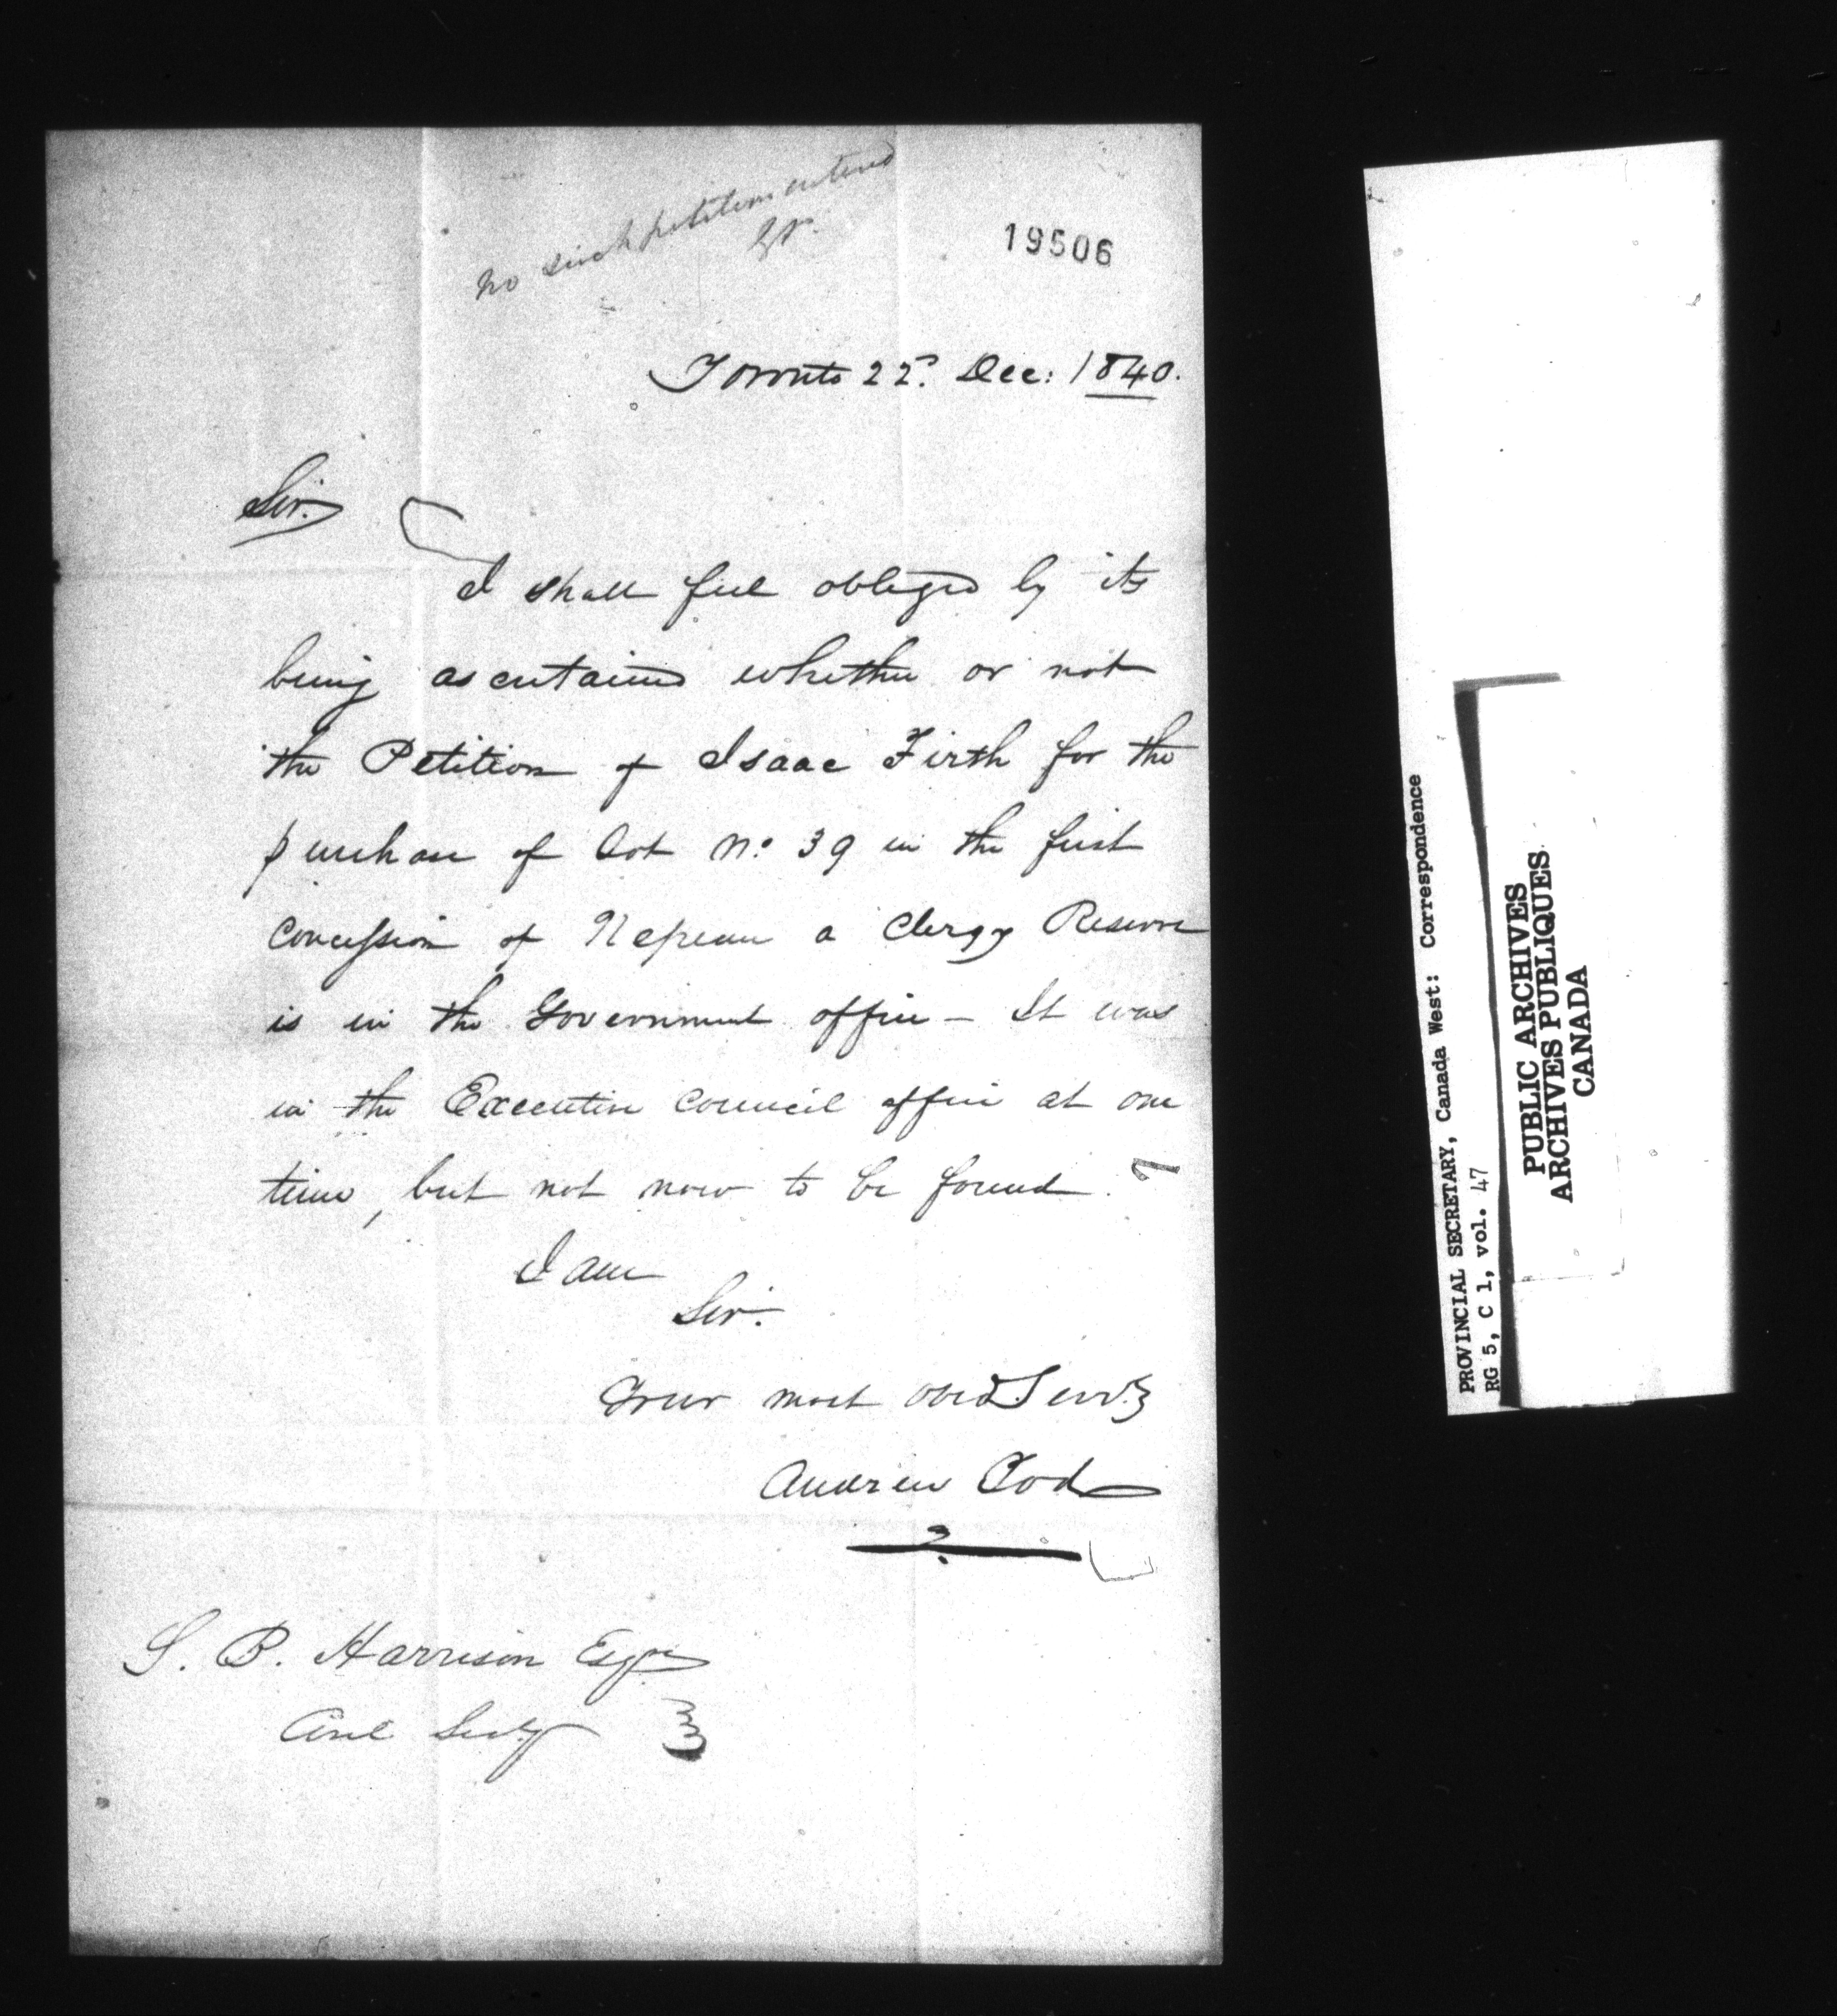 no such petition entered
19506
Toronto 22d. Dec: 1840.
Sir.
I shall feel obliged by its
being ascertained whether or not
the Petition of Isaac Firth for the
purchase of Lot No. 39 in the first
concession of Nepean a Clergy Reserve
is in the Government office - It was
in the Executive Council office at one
time, but not now to be found.
I am
Sir.
Your most obed. Servt.
Andrew Tod
S. B. Harrison Esqre
Secty
PROVINCIAL SECRETARY, Canada West: Correspondence
RG 5, C 1, vol. 47
PUBLIC ARCHIVES
ARCHIVES PUBLIQUES
CANADA